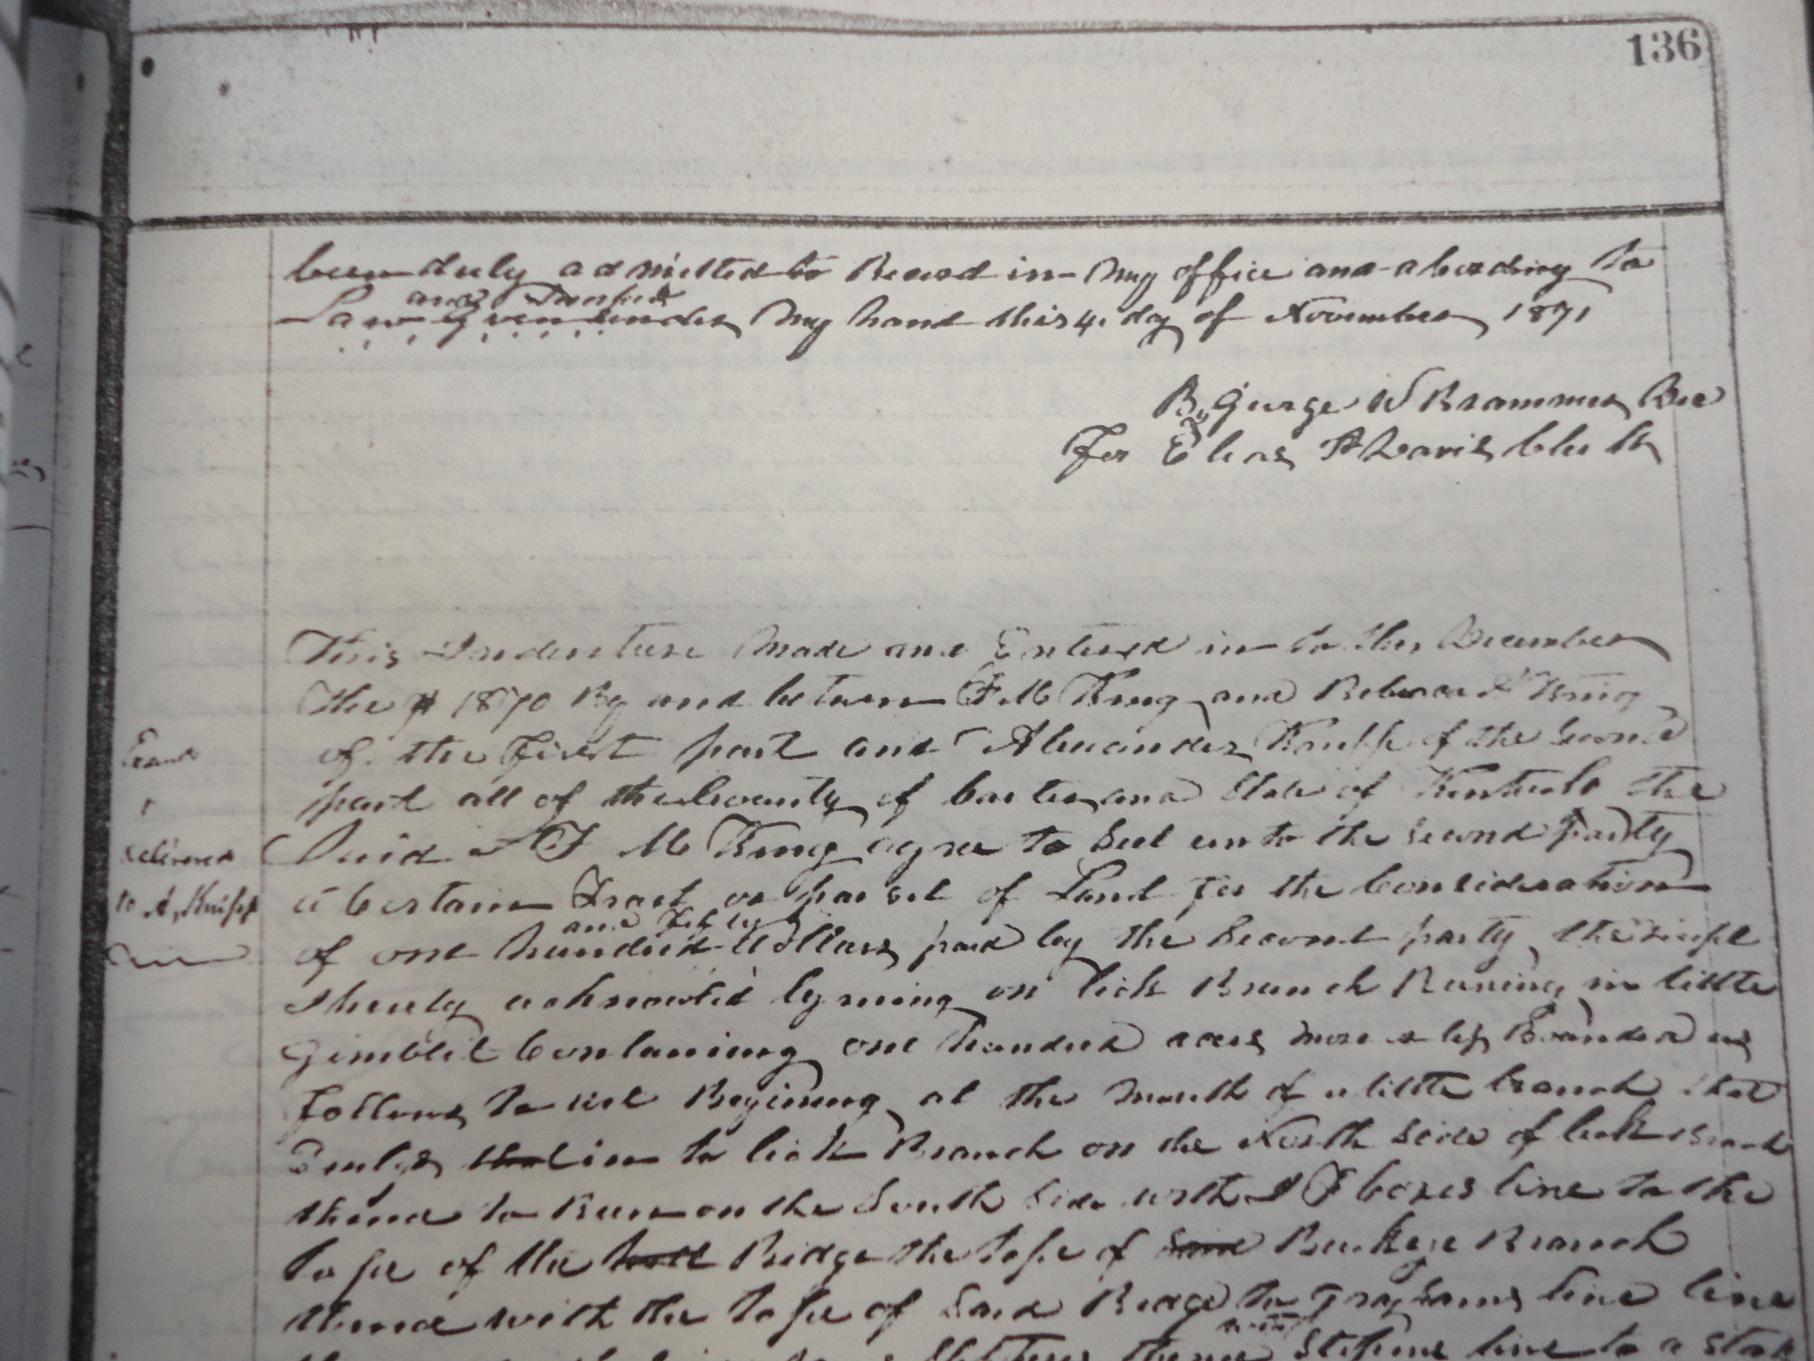 136
been duly admitted to Record in my office and abording to
and
Law given under my hand this 4 day of November 1871
By George W Brammer
For Elias P Davis Clerk
This Indenture Made and Entered in to this December
the 1870 By and between F M King and Rebecca King
of the First part and Alexander Knipp of the Second
part all of the County of Carter and State of the
Said F M King agree to Sell unto the Second party
delivered
to A, Knipp
a Certain Tract or parcel of Land For the Consideration
and Fifty
of one hundred dollars paid by the Second party the
on lick Branch Runing in little
Gimblet Contanning one hundred acres more or less Bounded as
Follows to wit Begining at the mouth of a little branch that
in to lick Branch on the North Side of lick Branch
thence to Run on the South Side with F Coxes line to the
tope of the Ridge the tope of Buckeye Branch
thence with the tope of Said Ridge to line line
line to a Stake